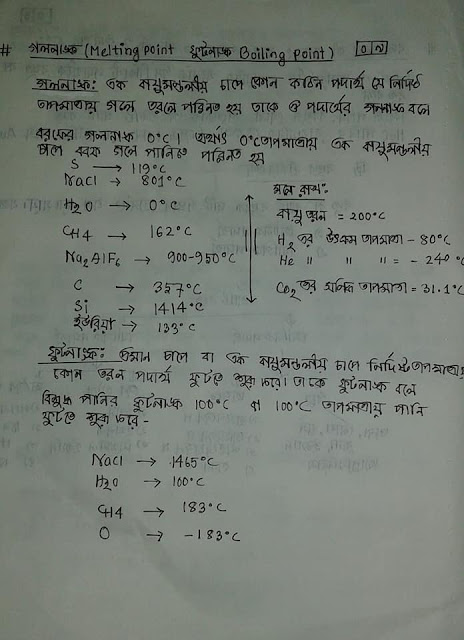 # গলনাঙ্ক (Melting point স্ফুটনাঙ্ক Boiling point) ০৭
গলনাঙ্ক: এক বায়ুমন্ডলীয় চাপে কোন কঠিন পদার্থ যে নির্দিষ্ট
তাপমাত্রায় গলে তরলে পরিনত হয় তাকে ঐ পদার্থের গলনাঙ্ক বলে
বরফের গলনাঙ্ক 0°C । অর্থাৎ 0°C তাপমাত্রায় এক বায়ুমন্ডলীয়
চাপে বরফ গলে পানিতে পরিনত হয়
S → 119°C
NaCl → 801°C
H2O → 0°C
CH4 → 162°C
Na2AlF6 → 900-950°C
C → 357°C
Si → 1414°C
ইউরিয়া → 133°C
মনে রাখ:
বায়ু তরল = 200°C
H2 এর উৎক্রম তাপমাত্রা - 80°C
He " " " = - 240°C
CO2 এর সন্ধি তাপমাত্রা = 31.1°C
স্ফুটনাঙ্ক: প্রমান চাপে বা এক বায়ুমন্ডলীয় চাপে নির্দিষ্ট তাপমাত্রায়
কোন তরল পদার্থ ফুটতে শুরু করে। তাকে স্ফুটনাঙ্ক বলে
বিশুদ্ধ পানির স্ফুটনাঙ্ক 100°C 100°C তাপমাত্রায় পানি
ফুটতে শুরু করে -
NaCl → 1465°C
H2O → 100°C
CH4 → 183°C
O → -183°C